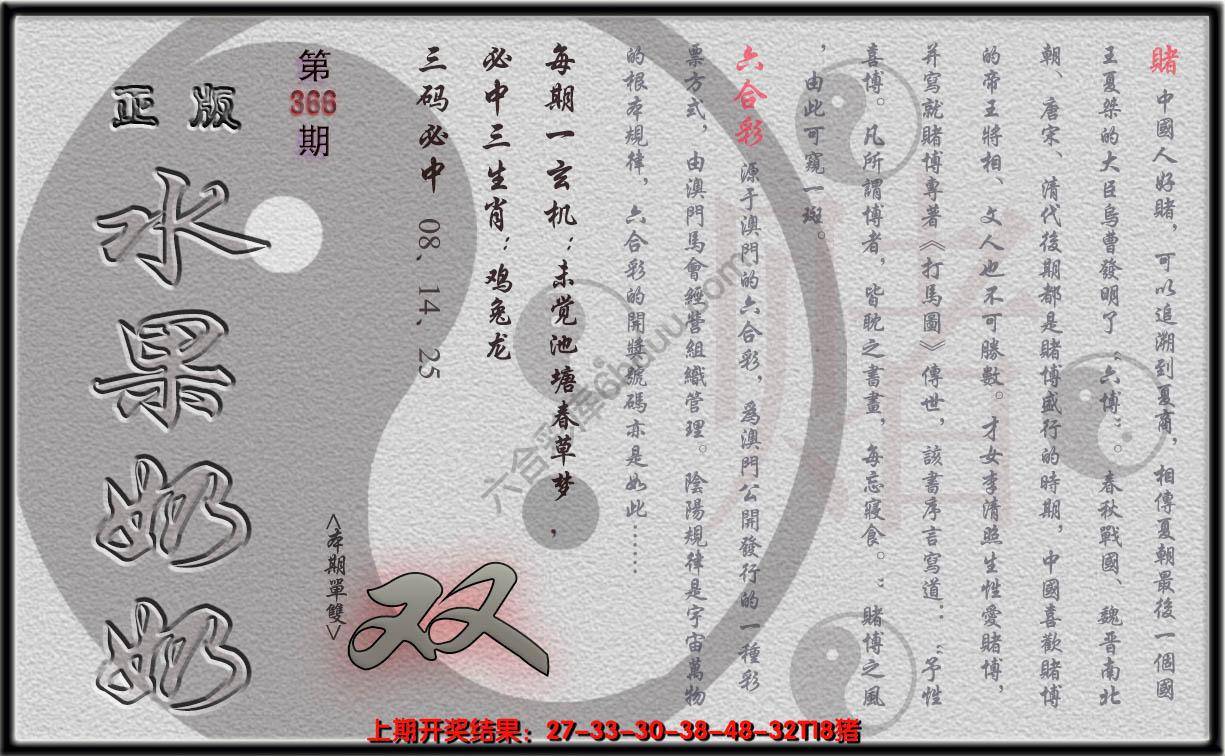 賭 中國人好賭，可以追溯到夏商，相傳夏朝最後一個國
王夏桀的大臣烏曹發明了“六博”。春秋戰國、魏晋南北
朝、唐宋、清代後期都是賭博盛行的時期，中國喜歡賭博
的帝王將相、文人也不可勝數。才女李清照生性愛賭博，
并寫就賭博專著《打馬圖》傳世，該書序言寫道：“予性
喜博。凡所謂博者，皆耽之書畫，每忘寢食。”賭博之風
，由此可窺一斑。
六合彩 源于澳門的六合彩，爲澳門公開發行的一種彩
票方式，由澳門馬會經營組織管理。陰陽規律是宇宙萬物
的根本規律，六合彩的開獎號碼亦是如此……
每期一玄机：未觉池塘春草梦，
必中三生肖：鸡兔龙
三码必中 08、14、25
第
366
期
正版
水果奶奶
<本期單雙>
双
六合彩库6huuu.com
上期开奖结果：27-33-30-38-48-32T18猪